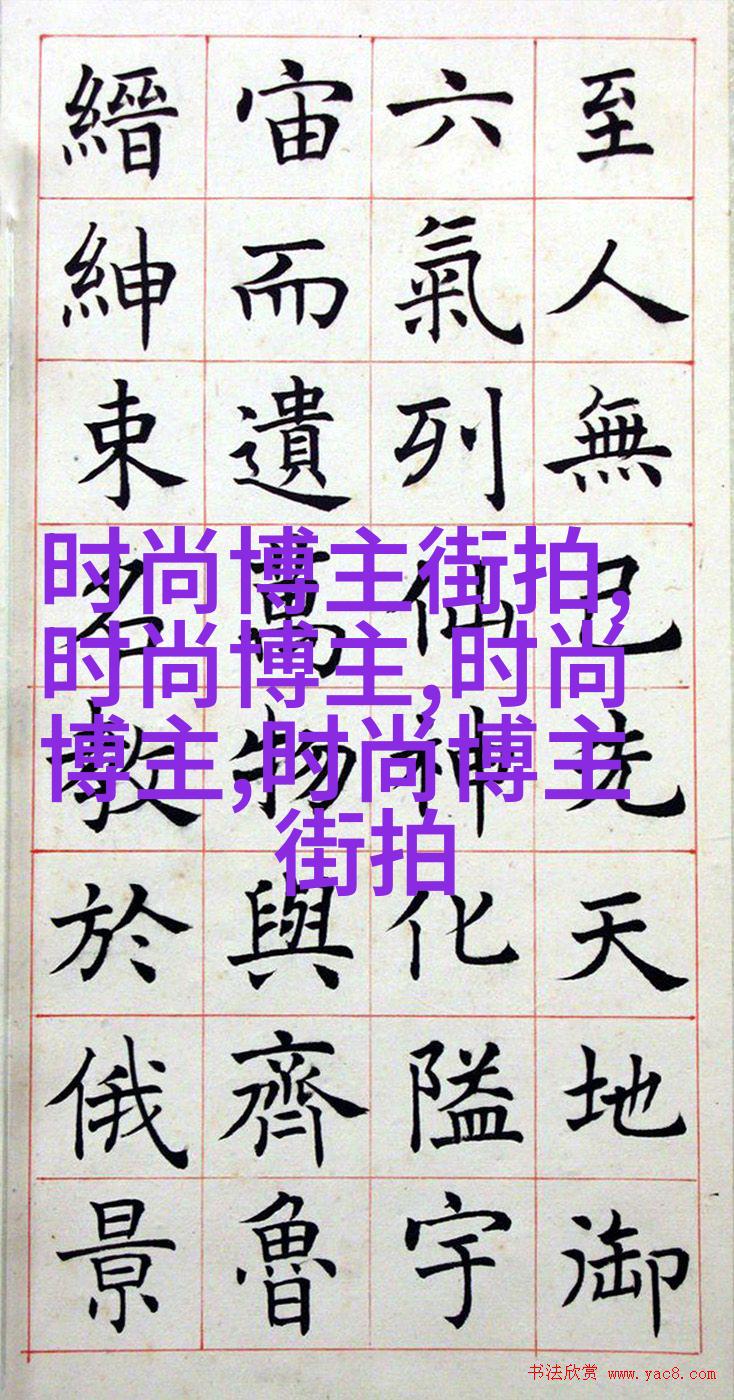 至人無己先天地御
六氣列仙神化隘宇
宙而遺萬物與齊魯
縉紳束名教於俄景
时尚博主街拍,
时尚博主,时尚
博主,时尚博主
街拍
书法欣赏 www.yac8.com